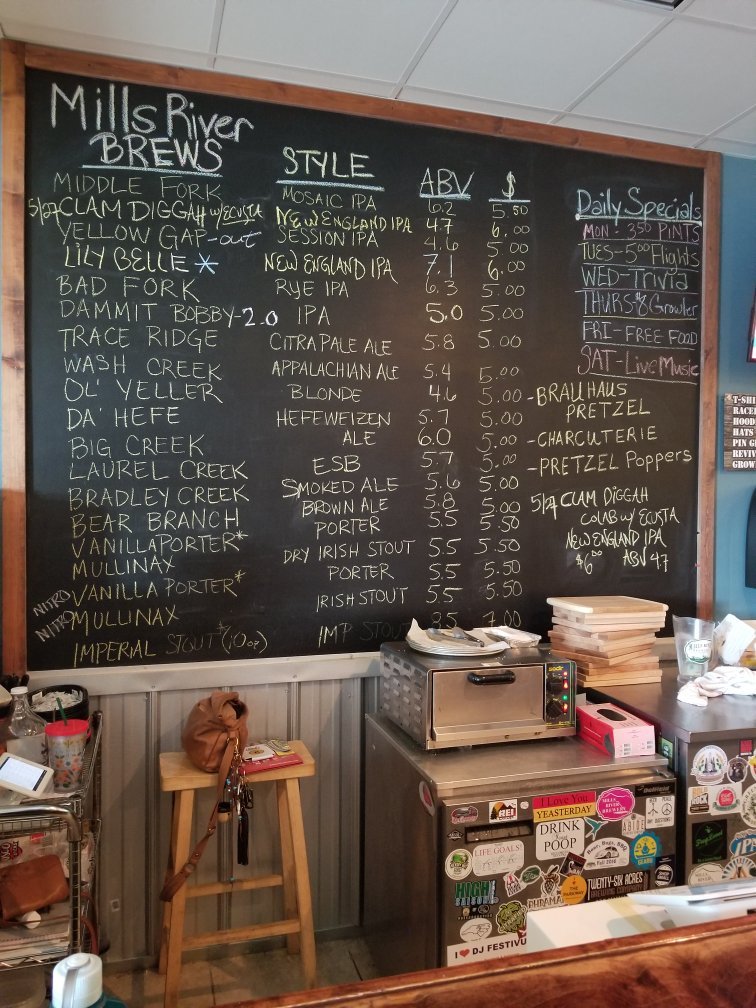 Mills River
BREWS
STYLE
ABV
$
MIDDLE FORK MOSAIC IPA 6.2 5.50
5/27 CLAM DIGGAH w/ECUSTA NEW ENGLAND IPA 4.7 6.00
YELLOW GAP-out SESSION IPA 4.6 5.00
LILY BELLE * NEW ENGLAND IPA 7.1 6.00
BAD FORK RYE IPA 6.3 5.00
DAMMIT BOBBY-2.0 IPA 5.0 5.00
TRACE RIDGE CITRA PALE ALE 5.8 5.00
WASH CREEK APPALACHIAN ALE 5.4 5.00
OL' YELLER BLONDE 4.6 5.00
DA' HEFE HEFEWEIZEN 5.7 5.00
BIG CREEK ALE 6.0 5.00
LAUREL CREEK ESB 5.7 5.00
BRADLEY CREEK SMOKED ALE 5.6 5.00
BEAR BRANCH BROWN ALE 5.8 5.00
VANILLA PORTER* PORTER 5.5 5.50
MULLINAX DRY IRISH STOUT 5.5 5.50
NITRO VANILLA PORTER* PORTER 5.5 5.50
NITRO MULLINAX IRISH STOUT 5.5 5.50
IMPERIAL STOUT* (10oz) IMP STOUT 8.5 7.00
Daily Specials
MON: 3.50 PINTS
TUES-5.00 Flights
WED-Trivia
THURS-$8 Growler
FRI-FREE FOOD
SAT-Live Music
-BRAUHAUS
PRETZEL
-CHARCUTERIE
-PRETZEL Poppers
5/27 CLAM DIGGAH
COLAB w/ ECUSTA
NEW ENGLAND IPA
$6.00 ABV 4.7
T-SHI
RACER
HOOD
HATS
PIN G
REVIV
GROW
I Love You
YEASTERDAY
REI
MILLS RIVER BREWERY
DRINK
POOP
LIFE GOALS
ABIDE
Beer, Bugs, BBQ
Fall 2016
TWENTY-SIX ACRES
BREWING COMPANY
HIGH
I ❤ DJ FESTIVU
IPA